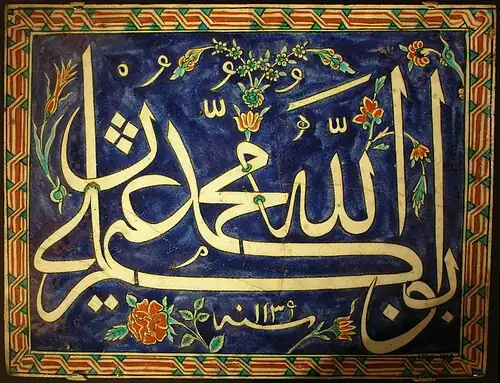 الله محمد
ابو بكر عمر عثمان علي
سنه ١١٣٩